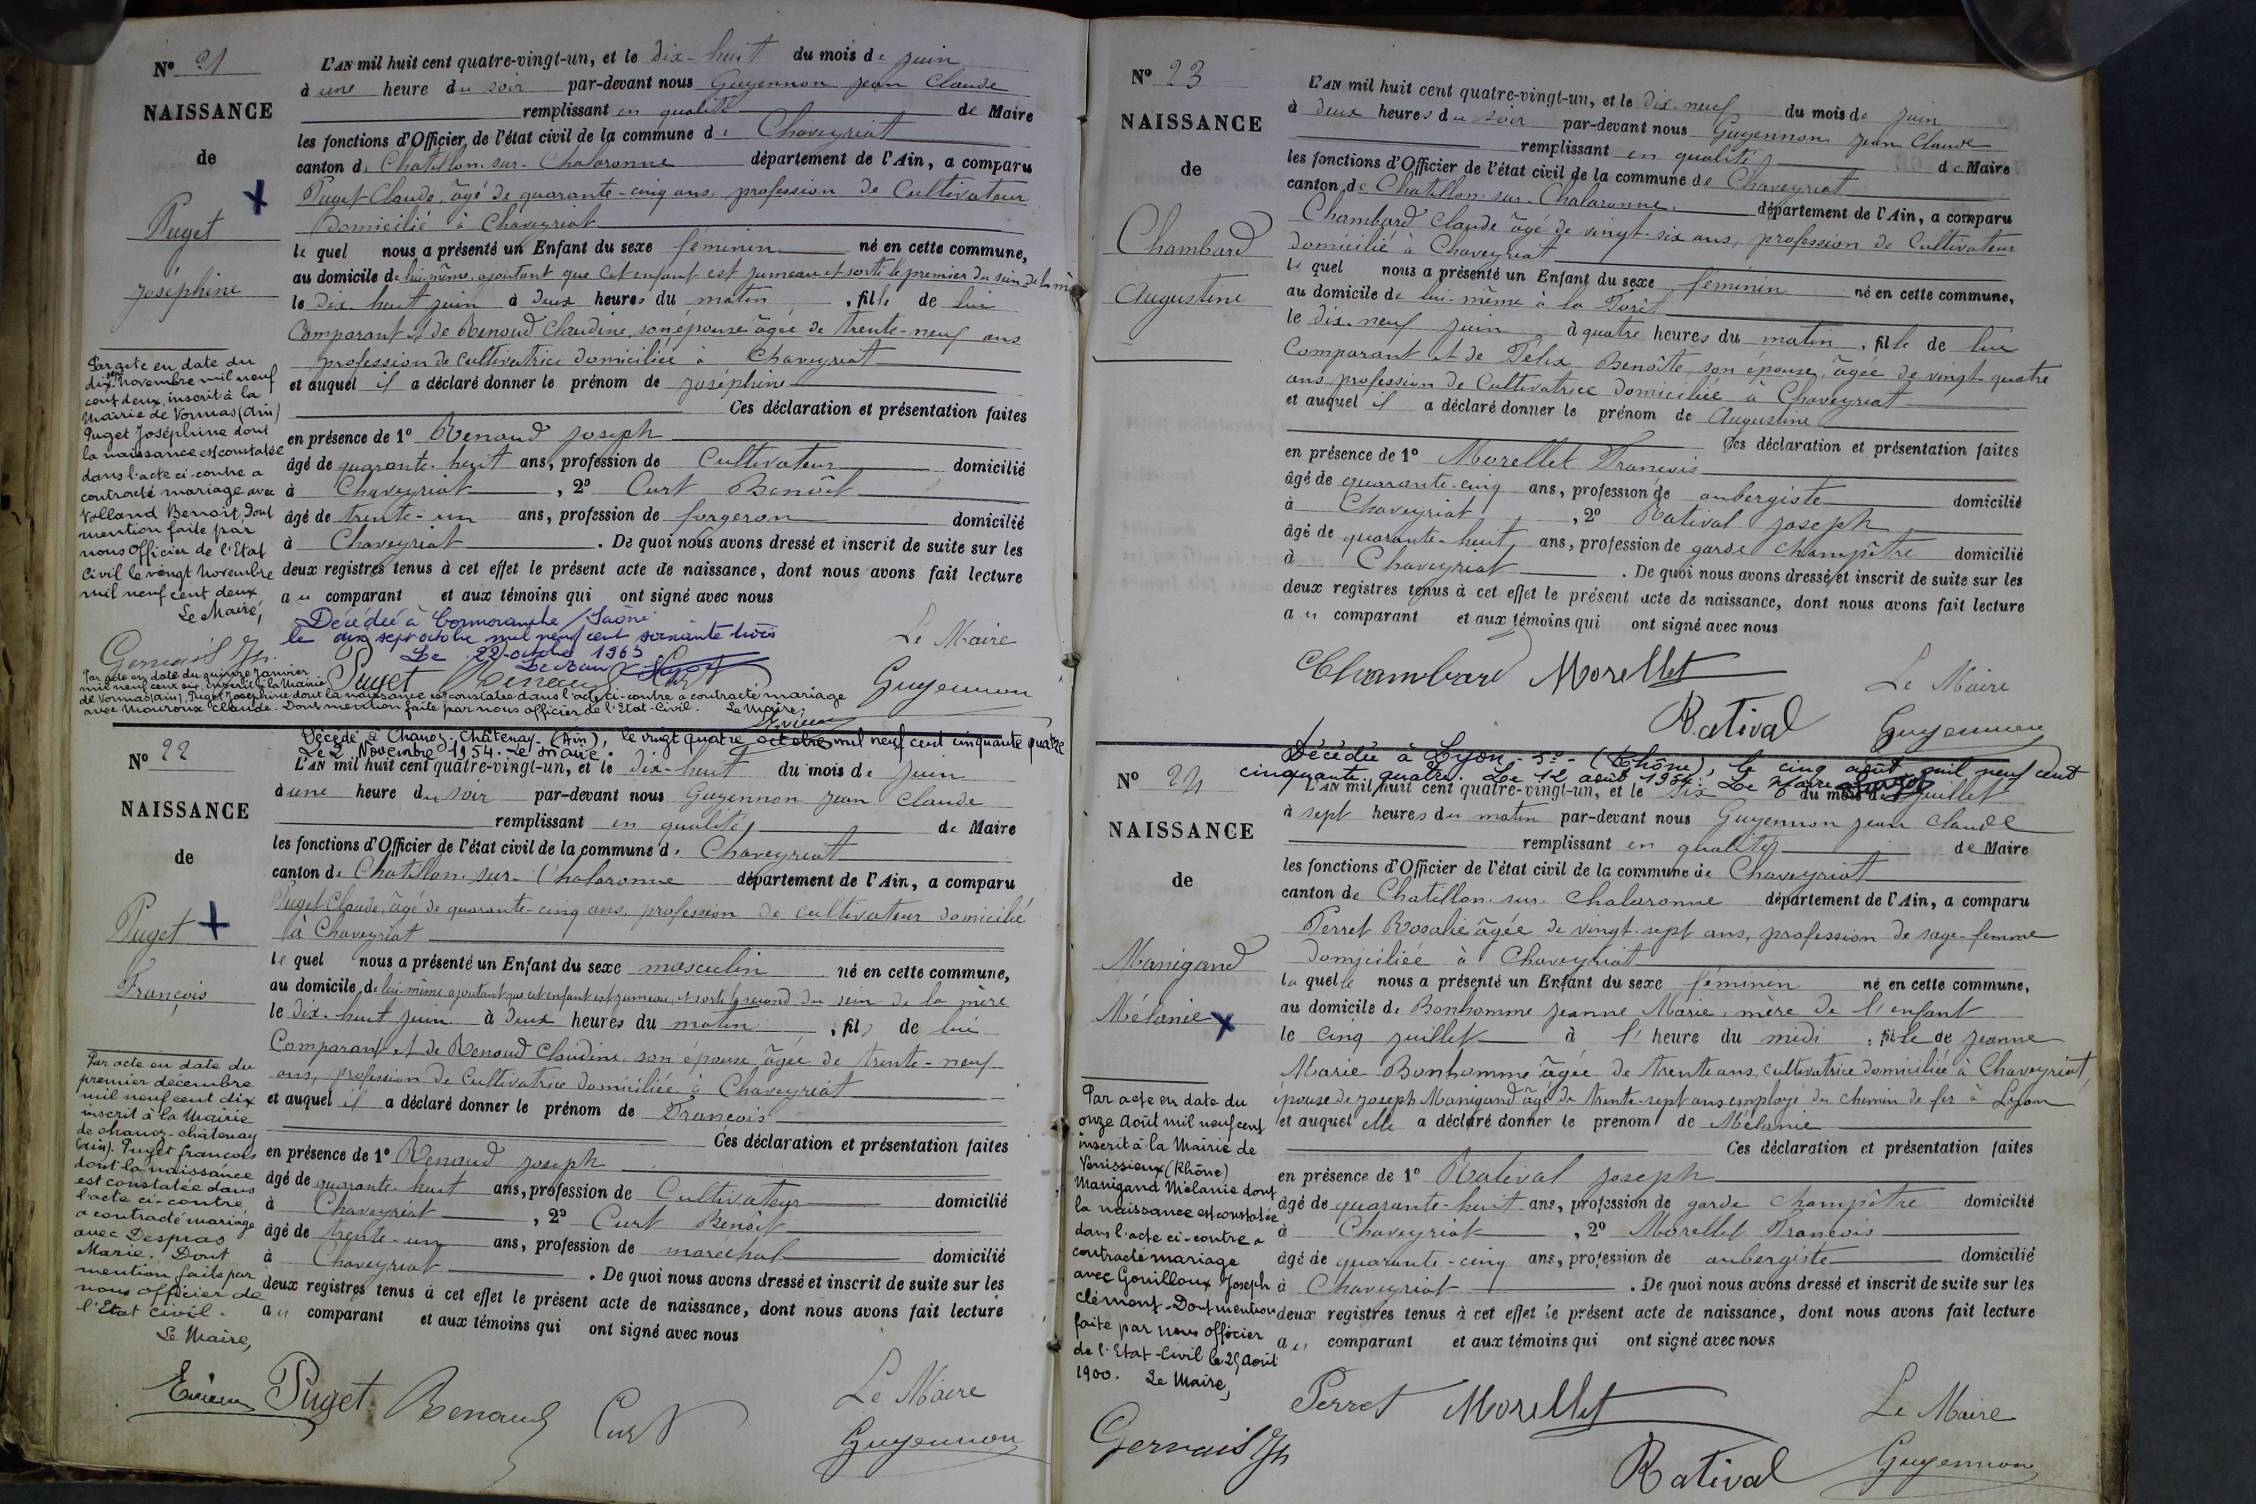 N° 21
NAISSANCE
de
Puget
Joséphine
L'AN mil huit cent quatre-vingt-un, et le dix-huit du mois de juin
à une heure du soir par-devant nous Guyennon Jean Claude
remplissant en qualité de Maire
les fonctions d'Officier de l'état civil de la commune de Chaveyriat
canton de Chatillon-sur-Chalaronne département de l'Ain, a comparu
Puget Claude, âgé de quarante-cinq ans, profession de Cultivateur
domicilié à Chaveyriat
le quel nous a présenté un Enfant du sexe féminin né en cette commune,
au domicile de lui-même, ajoutant que cet enfant est jumeau et sorti le premier du sein de la mère
le dix-huit juin à deux heures du matin, fille de lui
Comparant et de Renoud Claudine, son épouse âgée de trente-neuf ans
profession de cultivatrice domiciliée à Chaveyriat
et auquel il a déclaré donner le prénom de Joséphine
Ces déclaration et présentation faites
en présence de 1° Renaud Joseph
âgé de quarante-huit ans, profession de Cultivateur domicilié
à Chaveyriat, 2° Curt Benoît
âgé de trente-un ans, profession de forgeron domicilié
à Chaveyriat. De quoi nous avons dressé et inscrit de suite sur les
deux registres tenus à cet effet le présent acte de naissance, dont nous avons fait lecture
au comparant et aux témoins qui ont signé avec nous
Par acte en date du
dix-sept novembre mil neuf
cent deux, inscrit à la
Mairie de Vonnas (Ain)
Puget Joséphine dont
la naissance est constatée
dans l'acte ci-contre a
contracté mariage avec
Volland Benoit, dont
mention faite par
nous Officier de l'Etat
Civil le vingt Novembre
mil neuf cent deux
Le Maire,
Gervais Jh
Décédée à Cormoranche /Saône
le dix sept octobre mil neuf cent soixante trois
Le 22 octobre 1963
Le Maire
Puget Renaud Curt
Le Maire
Guyennon
Par acte en date du quinze Janvier
mil neuf cent six, inscrit à la Mairie
de Vonnas (Ain), Puget Joséphine dont la naissance est constatée dans l'acte ci-contre a contracté mariage
avec Mouroux Claude. Dont mention faite par nous officier de l'Etat-Civil. Le Maire,
N° 22
NAISSANCE
de
Puget
François
Décédé à Chanoz-Châtenay (Ain), le vingt quatre octobre mil neuf cent cinquante quatre
Le 2 Novembre 1954. Le Maire.
L'AN mil huit cent quatre-vingt-un, et le dix-huit du mois de juin
à une heure du soir par-devant nous Guyennon Jean Claude
remplissant en qualité de Maire
les fonctions d'Officier de l'état civil de la commune de Chaveyriat
canton de Chatillon-sur-Chalaronne département de l'Ain, a comparu
Puget Claude, âgé de quarante-cinq ans, profession de cultivateur domicilié
à Chaveyriat
le quel nous a présenté un Enfant du sexe masculin né en cette commune,
au domicile de lui-même ajoutant que cet enfant est jumeau, et sorti le second du sein de la mère
le dix-huit juin à deux heures du matin, fils de lui
Comparant et de Renoud Claudine, son épouse âgée de trente-neuf
ans, profession de Cultivatrice domiciliée à Chaveyriat
et auquel il a déclaré donner le prénom de François
Ces déclaration et présentation faites
en présence de 1° Renaud Joseph
âgé de quarante-huit ans, profession de Cultivateur domicilié
à Chaveyriat, 2° Curt Benoît
âgé de trente-un ans, profession de maréchal domicilié
à Chaveyriat. De quoi nous avons dressé et inscrit de suite sur les
deux registres tenus à cet effet le présent acte de naissance, dont nous avons fait lecture
au comparant et aux témoins qui ont signé avec nous
Par acte en date du
premier décembre
mil neuf cent dix
inscrit à la Mairie
de chanoz-châtenay
(Ain). Puget francois
dont la naissance
est constatée dans
l'acte ci-contre,
a contracté mariage
avec Despras
Marie. Dont
mention faite par
nous officier de
l'Etat civil.
Le Maire,
Puget Renaud Curt
Le Maire
Guyennon
N° 23
NAISSANCE
de
Chambard
Augustine
L'AN mil huit cent quatre-vingt-un, et le dix-neuf du mois de juin
à deux heures du soir par-devant nous Guyennon Jean Claude
remplissant en qualité de Maire
les fonctions d'Officier de l'état civil de la commune de Chaveyriat
canton de Chatillon-sur-Chalaronne département de l'Ain, a comparu
Chambard Claude âgé de vingt-six ans, profession de Cultivateur
domicilié à Chaveyriat
le quel nous a présenté un Enfant du sexe féminin né en cette commune,
au domicile de lui-même à la Forêt
le dix-neuf juin, à quatre heures du matin, fille de lui
Comparant et de Félix Benoîte, son épouse, âgée de vingt-quatre
ans, profession de Cultivatrice domiciliée à Chaveyriat
et auquel il a déclaré donner le prénom de Augustine
Ces déclaration et présentation faites
en présence de 1° Morellet François
âgé de quarante-cinq ans, profession de aubergiste domicilié
à Chaveyriat, 2° Ratival Joseph
âgé de quarante-huit ans, profession de garde champêtre domicilié
à Chaveyriat. De quoi nous avons dressé et inscrit de suite sur les
deux registres tenus à cet effet le présent acte de naissance, dont nous avons fait lecture
au comparant et aux témoins qui ont signé avec nous
Chambard Morellet
Le Maire
Ratival Guyennon
N° 24
NAISSANCE
de
Manigand
Mélanie
Décédée à Lyon-5e-(Rhône), le cinq août mil neuf cent
cinquante quatre. Le 12 août 1954. Le Maire
L'AN mil huit cent quatre-vingt-un, et le six du mois de juillet
à sept heures du matin par-devant nous Guyennon Jean Claude
remplissant en qualité de Maire
les fonctions d'Officier de l'état civil de la commune de Chaveyriat
canton de Chatillon-sur-Chalaronne département de l'Ain, a comparu
Perret Rosalie âgée de vingt-sept ans, profession de sage-femme
domiciliée à Chaveyriat
la quelle nous a présenté un Enfant du sexe féminin né en cette commune,
au domicile de Bonhomme Jeanne Marie, mère de l'enfant
le cinq juillet à l' heure du midi, fille de Jeanne
Marie Bonhomme âgée de trente ans, cultivatrice domiciliée à Chaveyriat,
épouse de Joseph Manigand âgé de trente-sept ans employé du chemin de fer à Lyon
et auquel elle a déclaré donner le prénom de Mélanie
Ces déclaration et présentation faites
en présence de 1° Ratival Joseph
âgé de quarante-huit ans, profession de garde champêtre domicilié
à Chaveyriat, 2° Morellet François
âgé de quarante-cinq ans, profession de aubergiste domicilié
à Chaveyriat. De quoi nous avons dressé et inscrit de suite sur les
deux registres tenus à cet effet le présent acte de naissance, dont nous avons fait lecture
au comparant et aux témoins qui ont signé avec nous
Par acte en date du
onze Août mil neuf cent
inscrit à la Mairie de
Vénissieux (Rhône)
Manigand Mélanie dont
la naissance est constatée
dans l'acte ci-contre a
contracté mariage
avec Gouilloux Joseph
clément. Dont mention
faite par nous officier
de l'Etat-Civil le 25 Août
1900. Le Maire,
Gervais Jh
Perret Morellet
Le Maire
Ratival Guyennon